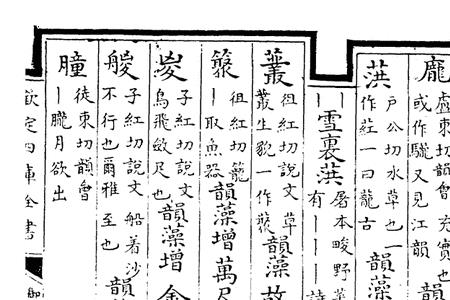 龐盧東切韻會充實也或作驡又見江韻韻
葓戶公切水草也一作葒一曰龍古韻藻
｜｜雪裏葓屠本畯野有｜｜｜詩
叢徂紅切說文草叢生貌一作藂韻藻故
䉘徂紅切籠｜取魚器韻藻增萬尺
㚇子紅切說文鳥飛斂足也韻藻增
艐子紅切說文船着沙不行也爾雅至也韻
朣徒東切韻會｜朧月欲出
欽定四庫全書